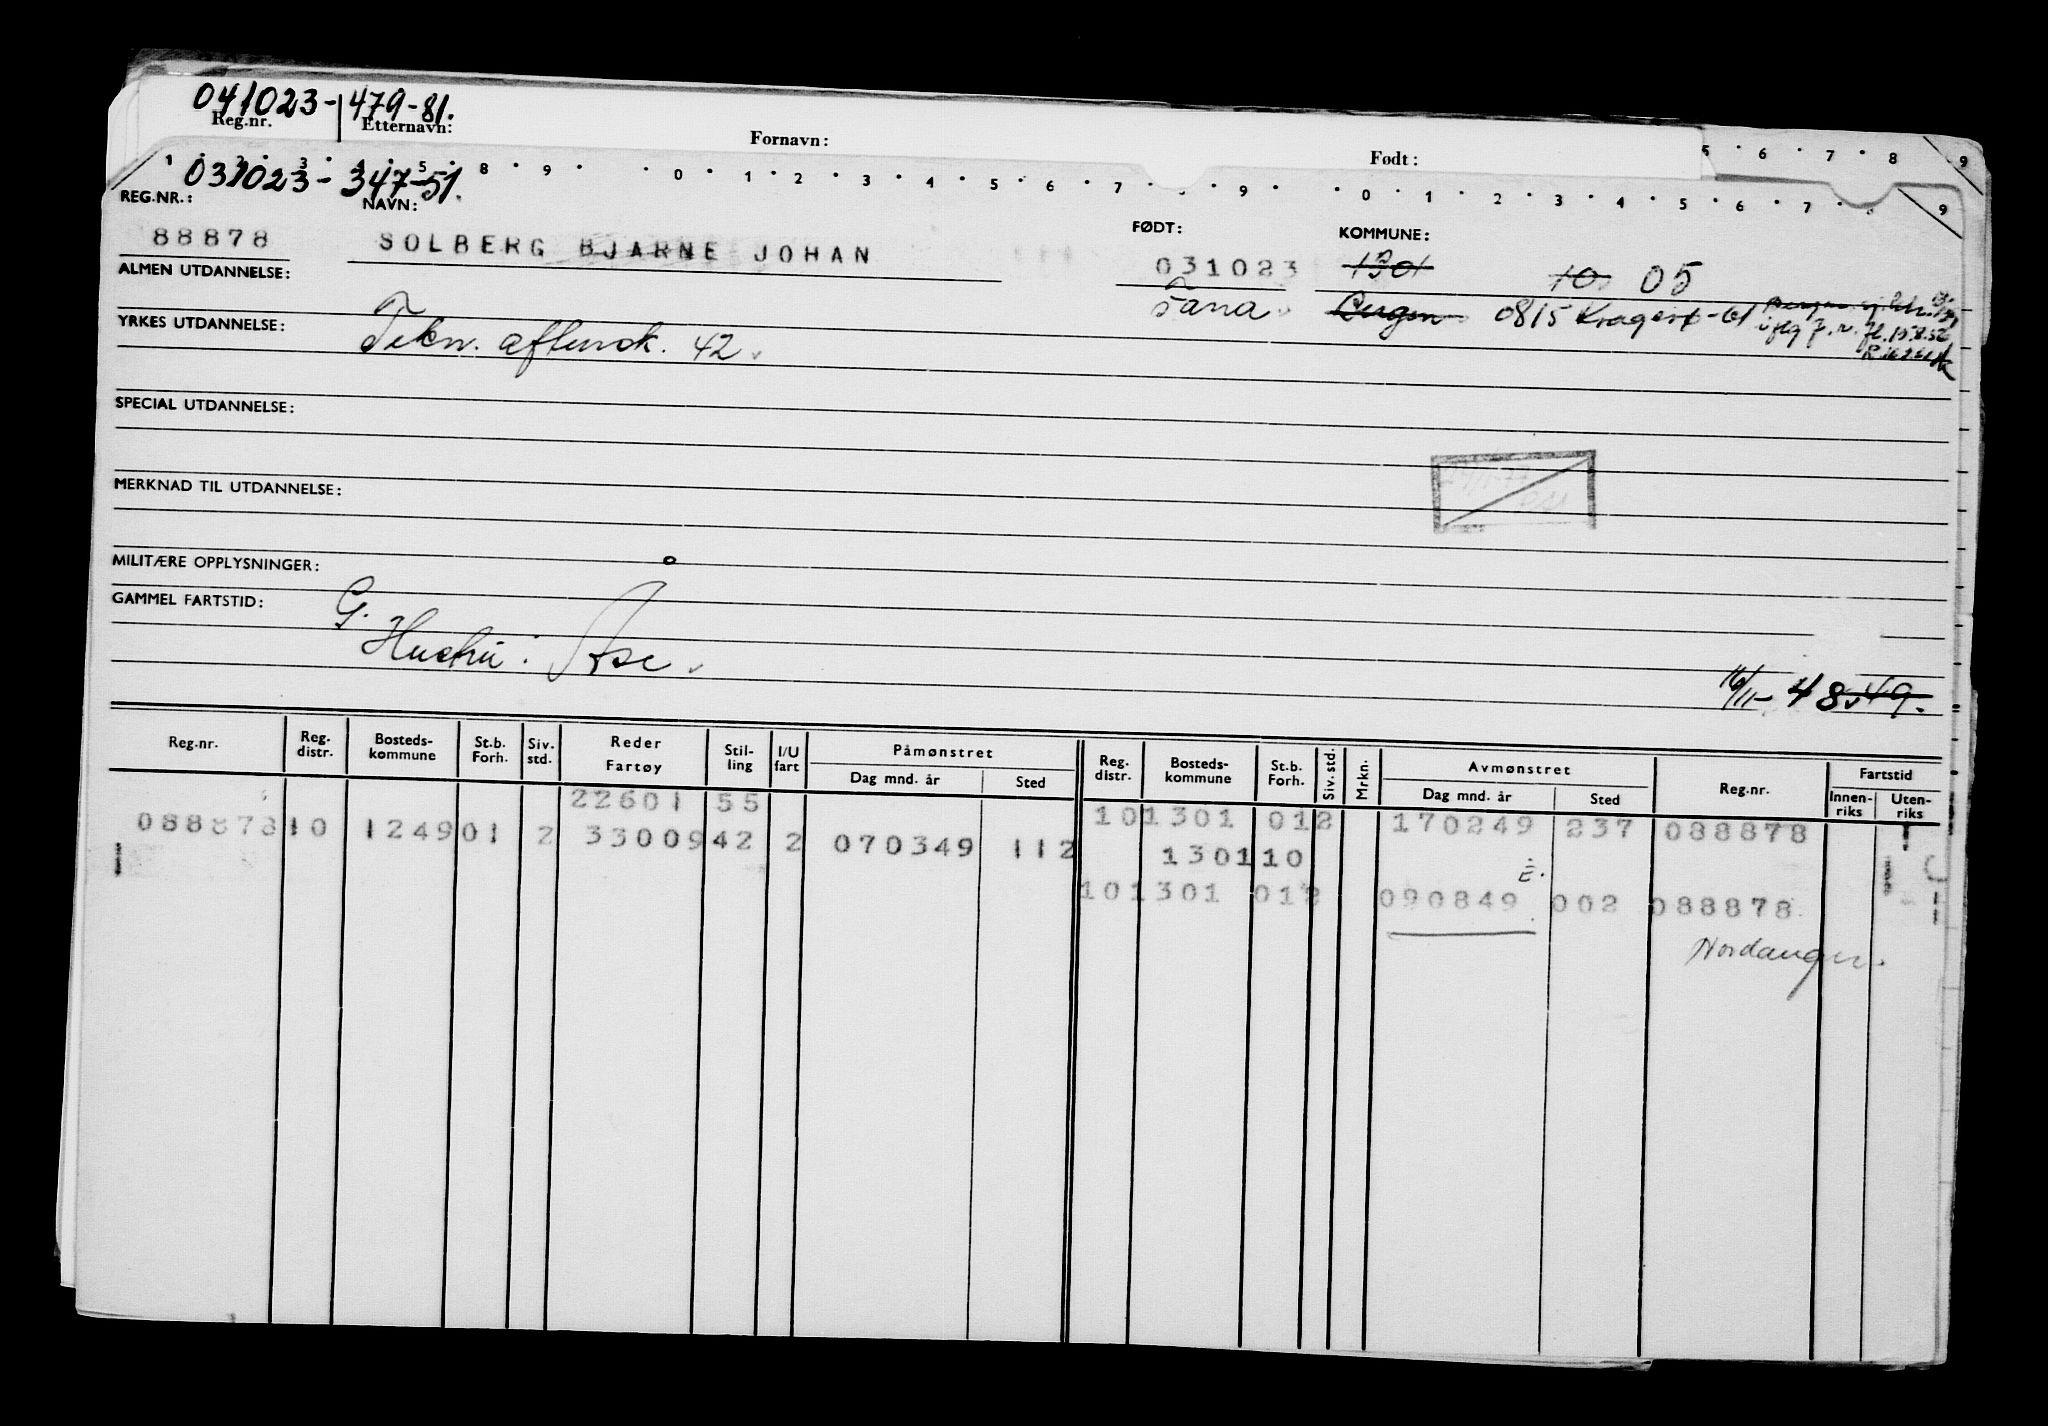 041023-479-81.
Reg.nr. Etternavn: Fornavn: Født:
031023-347-51.
REG.NR.: NAVN: FØDT: KOMMUNE:
88878 SOLBERG BJARNE JOHAN 031023 1301 10 05
ALMEN UTDANNELSE: Fana Bergen 0815 Kragerø-61
YRKES UTDANNELSE: Tekn. aftensk. 42.
SPECIAL UTDANNELSE:
MERKNAD TIL UTDANNELSE:
MILITÆRE OPPLYSNINGER:
GAMMEL FARTSTID: G.
Hustru: Åse.
16/11-48 49.
Reg.nr. Reg. distr. Bosteds- kommune St.b. Forh. Siv. std. Reder Fartøy Stil- ling I/U fart Påmønstret Dag mnd. år Sted Reg. distr. Bosteds- kommune St.b. Forh. Siv. std. Mrkn. Avmønstret Dag mnd. år Sted Reg.nr. Fartstid Innen- riks Uten- riks
22601 55 10 1301 01 2 170249 237 088878
088878 10 1249 01 2 33009 42 2 070349 112 1301 10
10 1301 01 2 090849 002 088878
Nordanger.